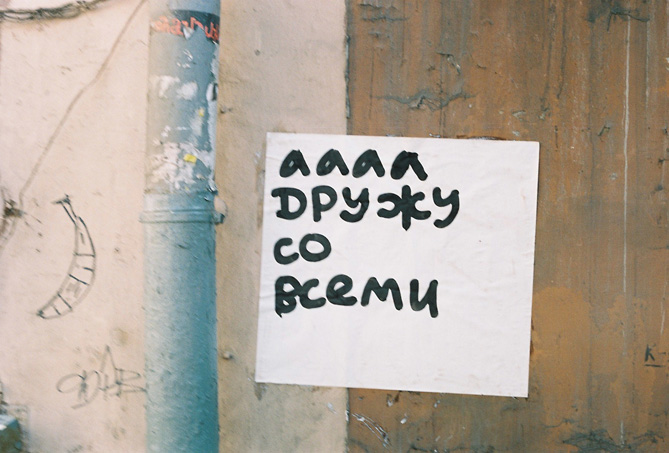 аааа
ДРУЖУ
СО
ВСЕМИ
K